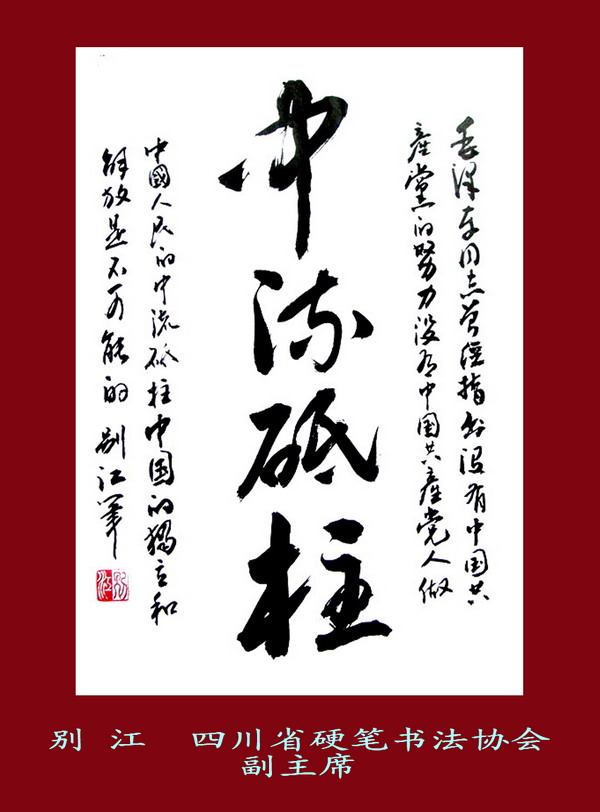 毛泽东同志曾经指出没有中国共
產黨的努力没有中国共產党人做
中流砥柱
中國人民的中流砥柱中国的獨立和
解放是不可能的 别江笔
别江
别 江 四川省硬笔书法协会
副主席